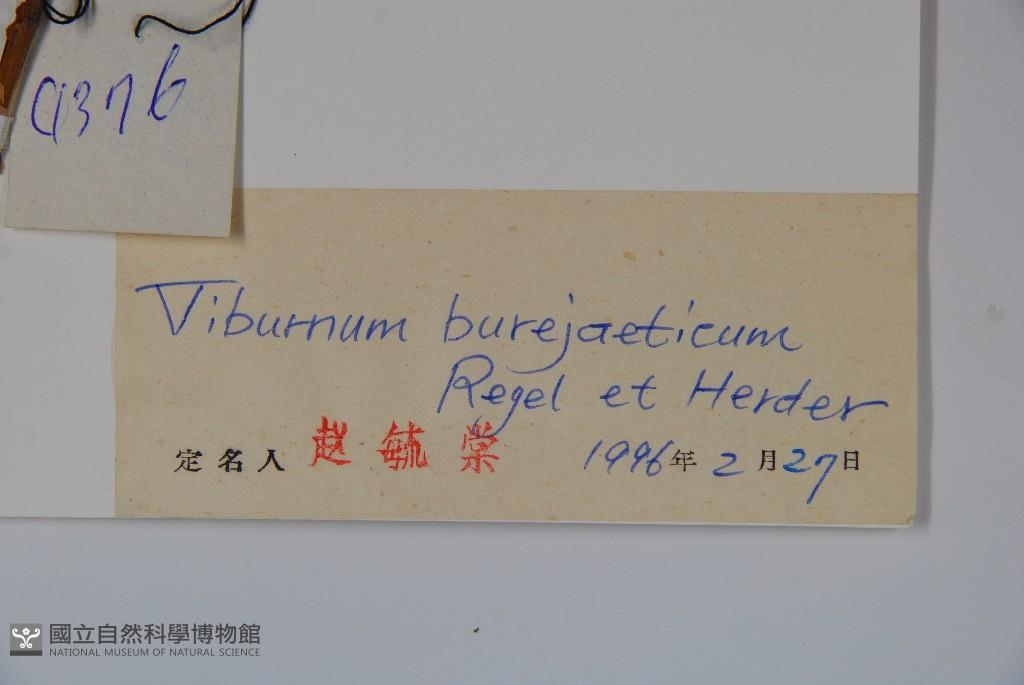 9376
Viburnum burejaeticum
Regel et Herder
定名人 赵毓棠 1996年2月27日
國立自然科學博物館
NATIONAL MUSEUM OF NATURAL SCIENCE